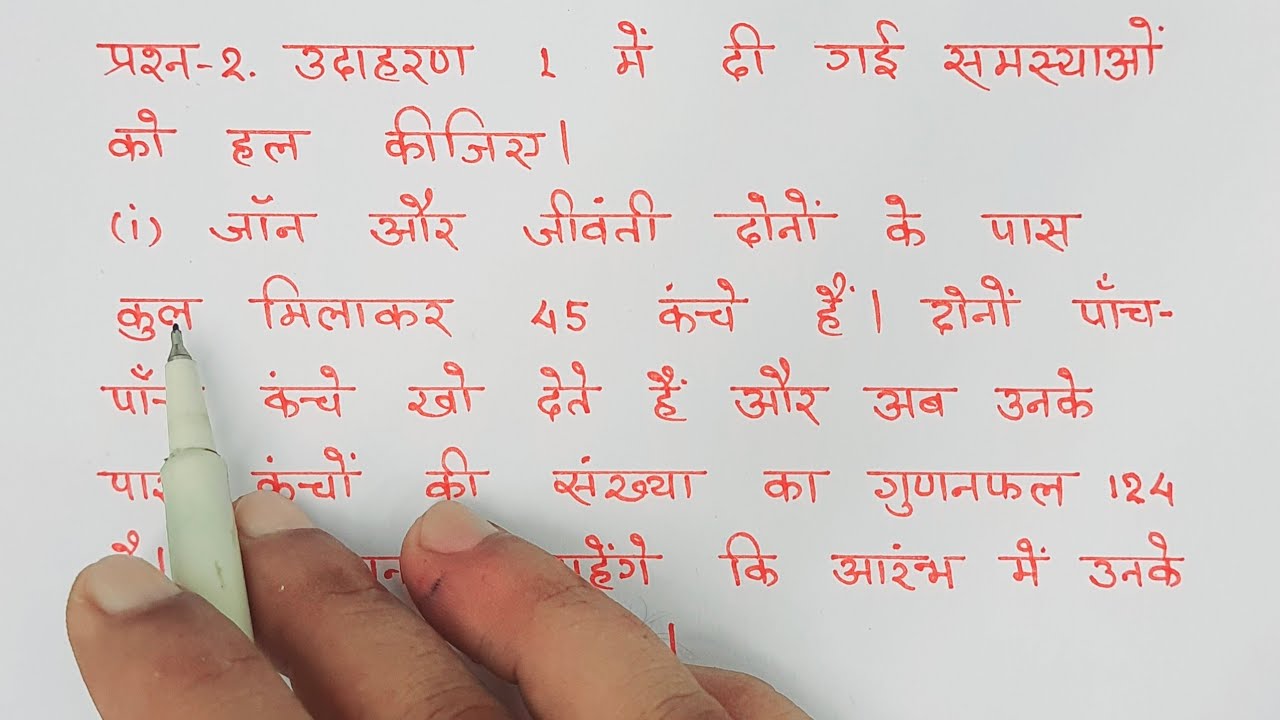 प्रश्न-2. उदाहरण 1 में दी गई समस्याओं
को हल कीजिए।
(i) जॉन और जीवंती दोनों के पास
कुल मिलाकर 45 कंचे हैं। दोनों पाँच-
कंचे खो देते हैं और अब उनके
कंचों की संख्या का गुणनफल 124
है। कि आरंभ में उनके